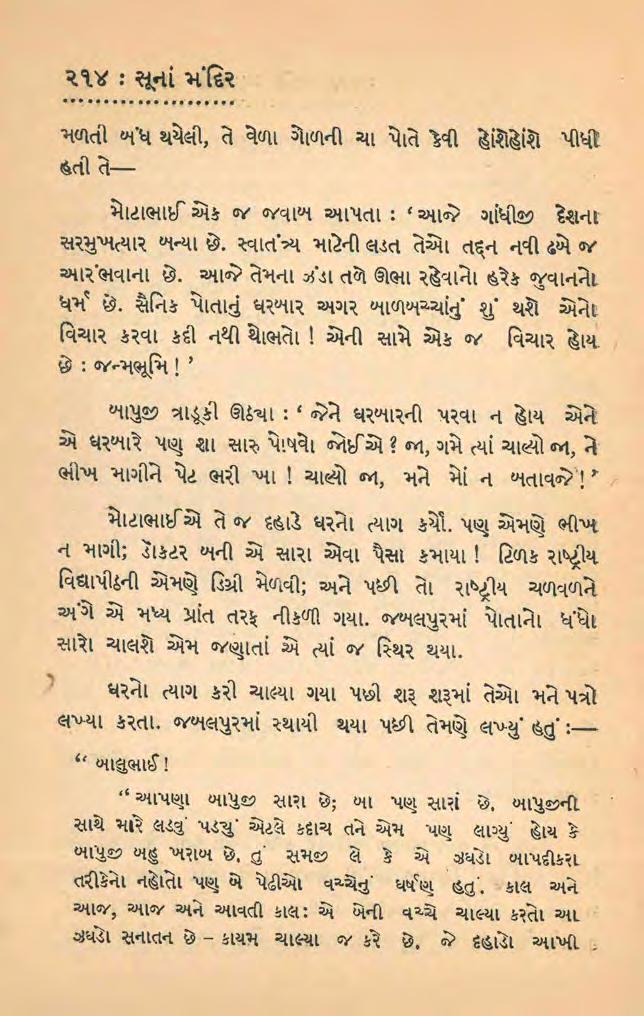 ૨૧૪ : સૂનાં મંદિર
મળતી બંધ થયેલી, તે વેળા ગોળની ચા પોતે કેવી હોંશેહોંશે પીધી
હતી તે—
મોટાભાઈ એક જ જવાબ આપતા : ‘આજે ગાંધીજી દેશના
સરમુખત્યાર બન્યા છે. સ્વાતંત્ર્ય માટેની લડત તેઓ તદ્દન નવી ઢબે જ
આરંભવાના છે. આજે તેમના ઝંડા તળે ઊભા રહેવાનો હરેક જુવાનનો
ધર્મ છે. સૈનિક પોતાનું ઘરબાર અગર બાળબચ્ચાંનું શું થશે એનો
વિચાર કરવા કદી નથી થોભતો ! એની સામે એક જ વિચાર હોય
છે : જન્મભૂમિ ! ’
બાપુજી ત્રાડૂકી ઊઠ્યા : ‘ જેને ઘરબારની પરવા ન હોય એને
એ ઘરબારે પણ શા સારુ પોષવો જોઈએ ? જા, ગમે ત્યાં ચાલ્યો જા, ને
ભીખ માગીને પેટ ભરી ખા ! ચાલ્યો જા, મને મોં ન બતાવજે ! ’
મોટાભાઈએ તે જ દહાડે ઘરનો ત્યાગ કર્યો. પણ એમણે ભીખ
ન માગી; ડૉકટર બની એ સારા એવા પૈસા કમાયા ! ટિળક રાષ્ટ્રીય
વિદ્યાપીઠની એમણે ડિગ્રી મેળવી; અને પછી તો રાષ્ટ્રીય ચળવળને
અંગે એ મધ્ય પ્રાંત તરફ નીકળી ગયા. જબલપુરમાં પોતાનો ધંધો
સારો ચાલશે એમ જણાતાં એ ત્યાં જ સ્થિર થયા.
ઘરનો ત્યાગ કરી ચાલ્યા ગયા પછી શરૂ શરૂમાં તેઓ મને પત્રો
લખ્યા કરતા. જબલપુરમાં સ્થાયી થયા પછી તેમણે લખ્યું હતું :—
“ બાલુભાઈ !
“ આપણા બાપુજી સારા છે; બા પણ સારાં છે. બાપુજીની
સાથે મારે લડવું પડ્યું એટલે કદાચ તને એમ પણ લાગ્યું હોય કે
બાપુજી બહુ ખરાબ છે. તું સમજી લે કે એ ઝઘડો બાપદીકરા
તરીકેનો નહોતો પણ બે પેઢીઓ વચ્ચેનું ઘર્ષણ હતું. કાલ અને
આજ, આજ અને આવતી કાલ: એ બેની વચ્ચે ચાલ્યા કરતો આ
ઝઘડો સનાતન છે – કાયમ ચાલ્યા જ કરે છે. જે દહાડો આખી